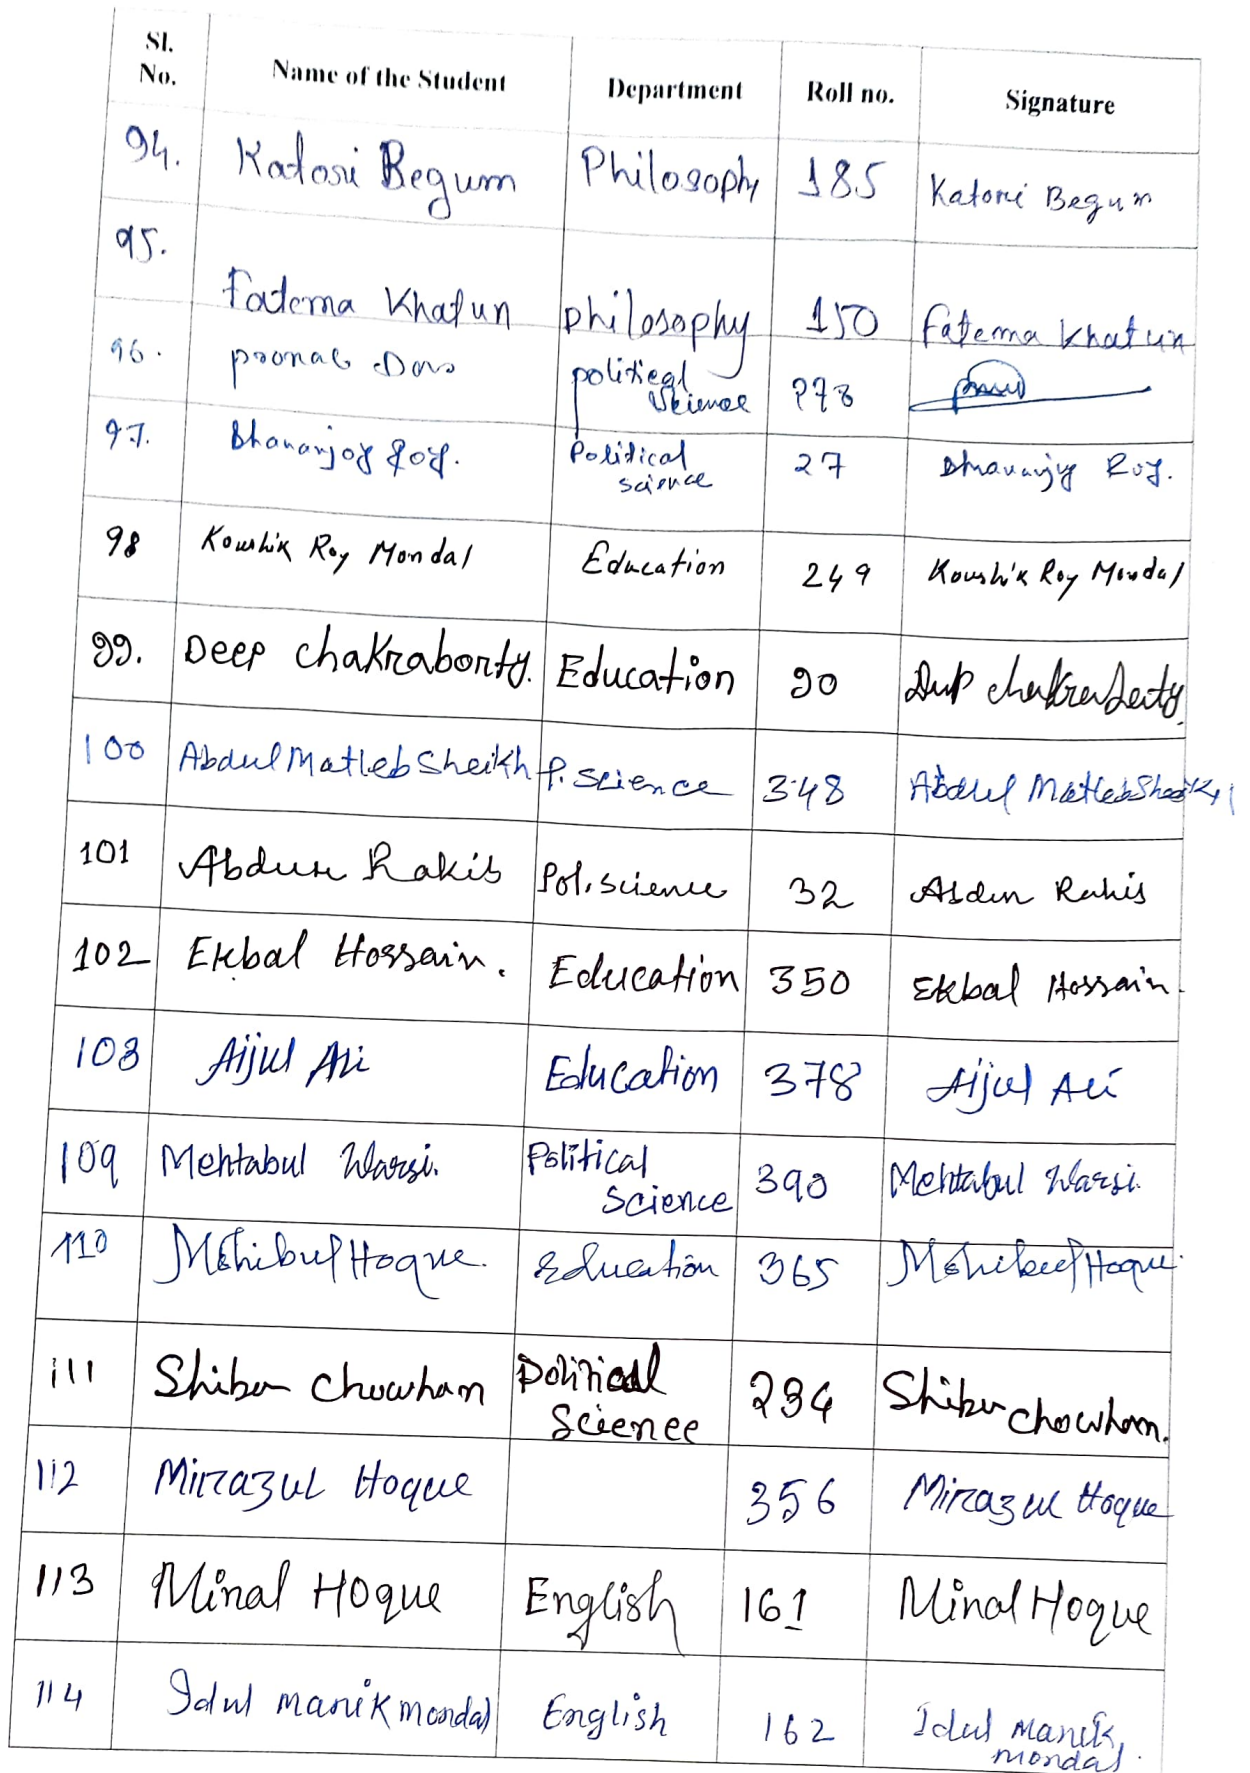 Sl. No. Name of the Student Department Roll no. Signature
94. Katori Begum Philosophy 185 Katori Begum
95. Fatema Khatun philosophy 150 Fatema Khatun
96. political Science 273
97. Dhananjoy Roy. Political science 27 Dhananjoy Roy.
98 Koushik Roy Mondal Education 249 Koushik Roy Mondal
99. Deep chakraborty. Education 90 Deep chakraborty.
100 Abdul Matleb Sheikh P. Science 348 Abdul Matleb Sheikh
101 Abdur Rakib Pol. science 32 Abdur Rakib
102 Ekbal Hossain. Education 350 Ekbal Hossain.
103 Aijul Ali Education 378 Aijul Ali
109 Mehtabul Warsi. Political Science 390 Mehtabul Warsi.
110 Mohibul Hoque. Education 365 Mohibul Hoque.
111 Shibu Chowhan Political Science 294 Shibu chowhan.
112 Mirazul Hoque 356 Mirazul Hoque
113 Minal Hoque English 161 Minal Hoque
114 Idul manik mondal English 162 Idul Manik mondal.